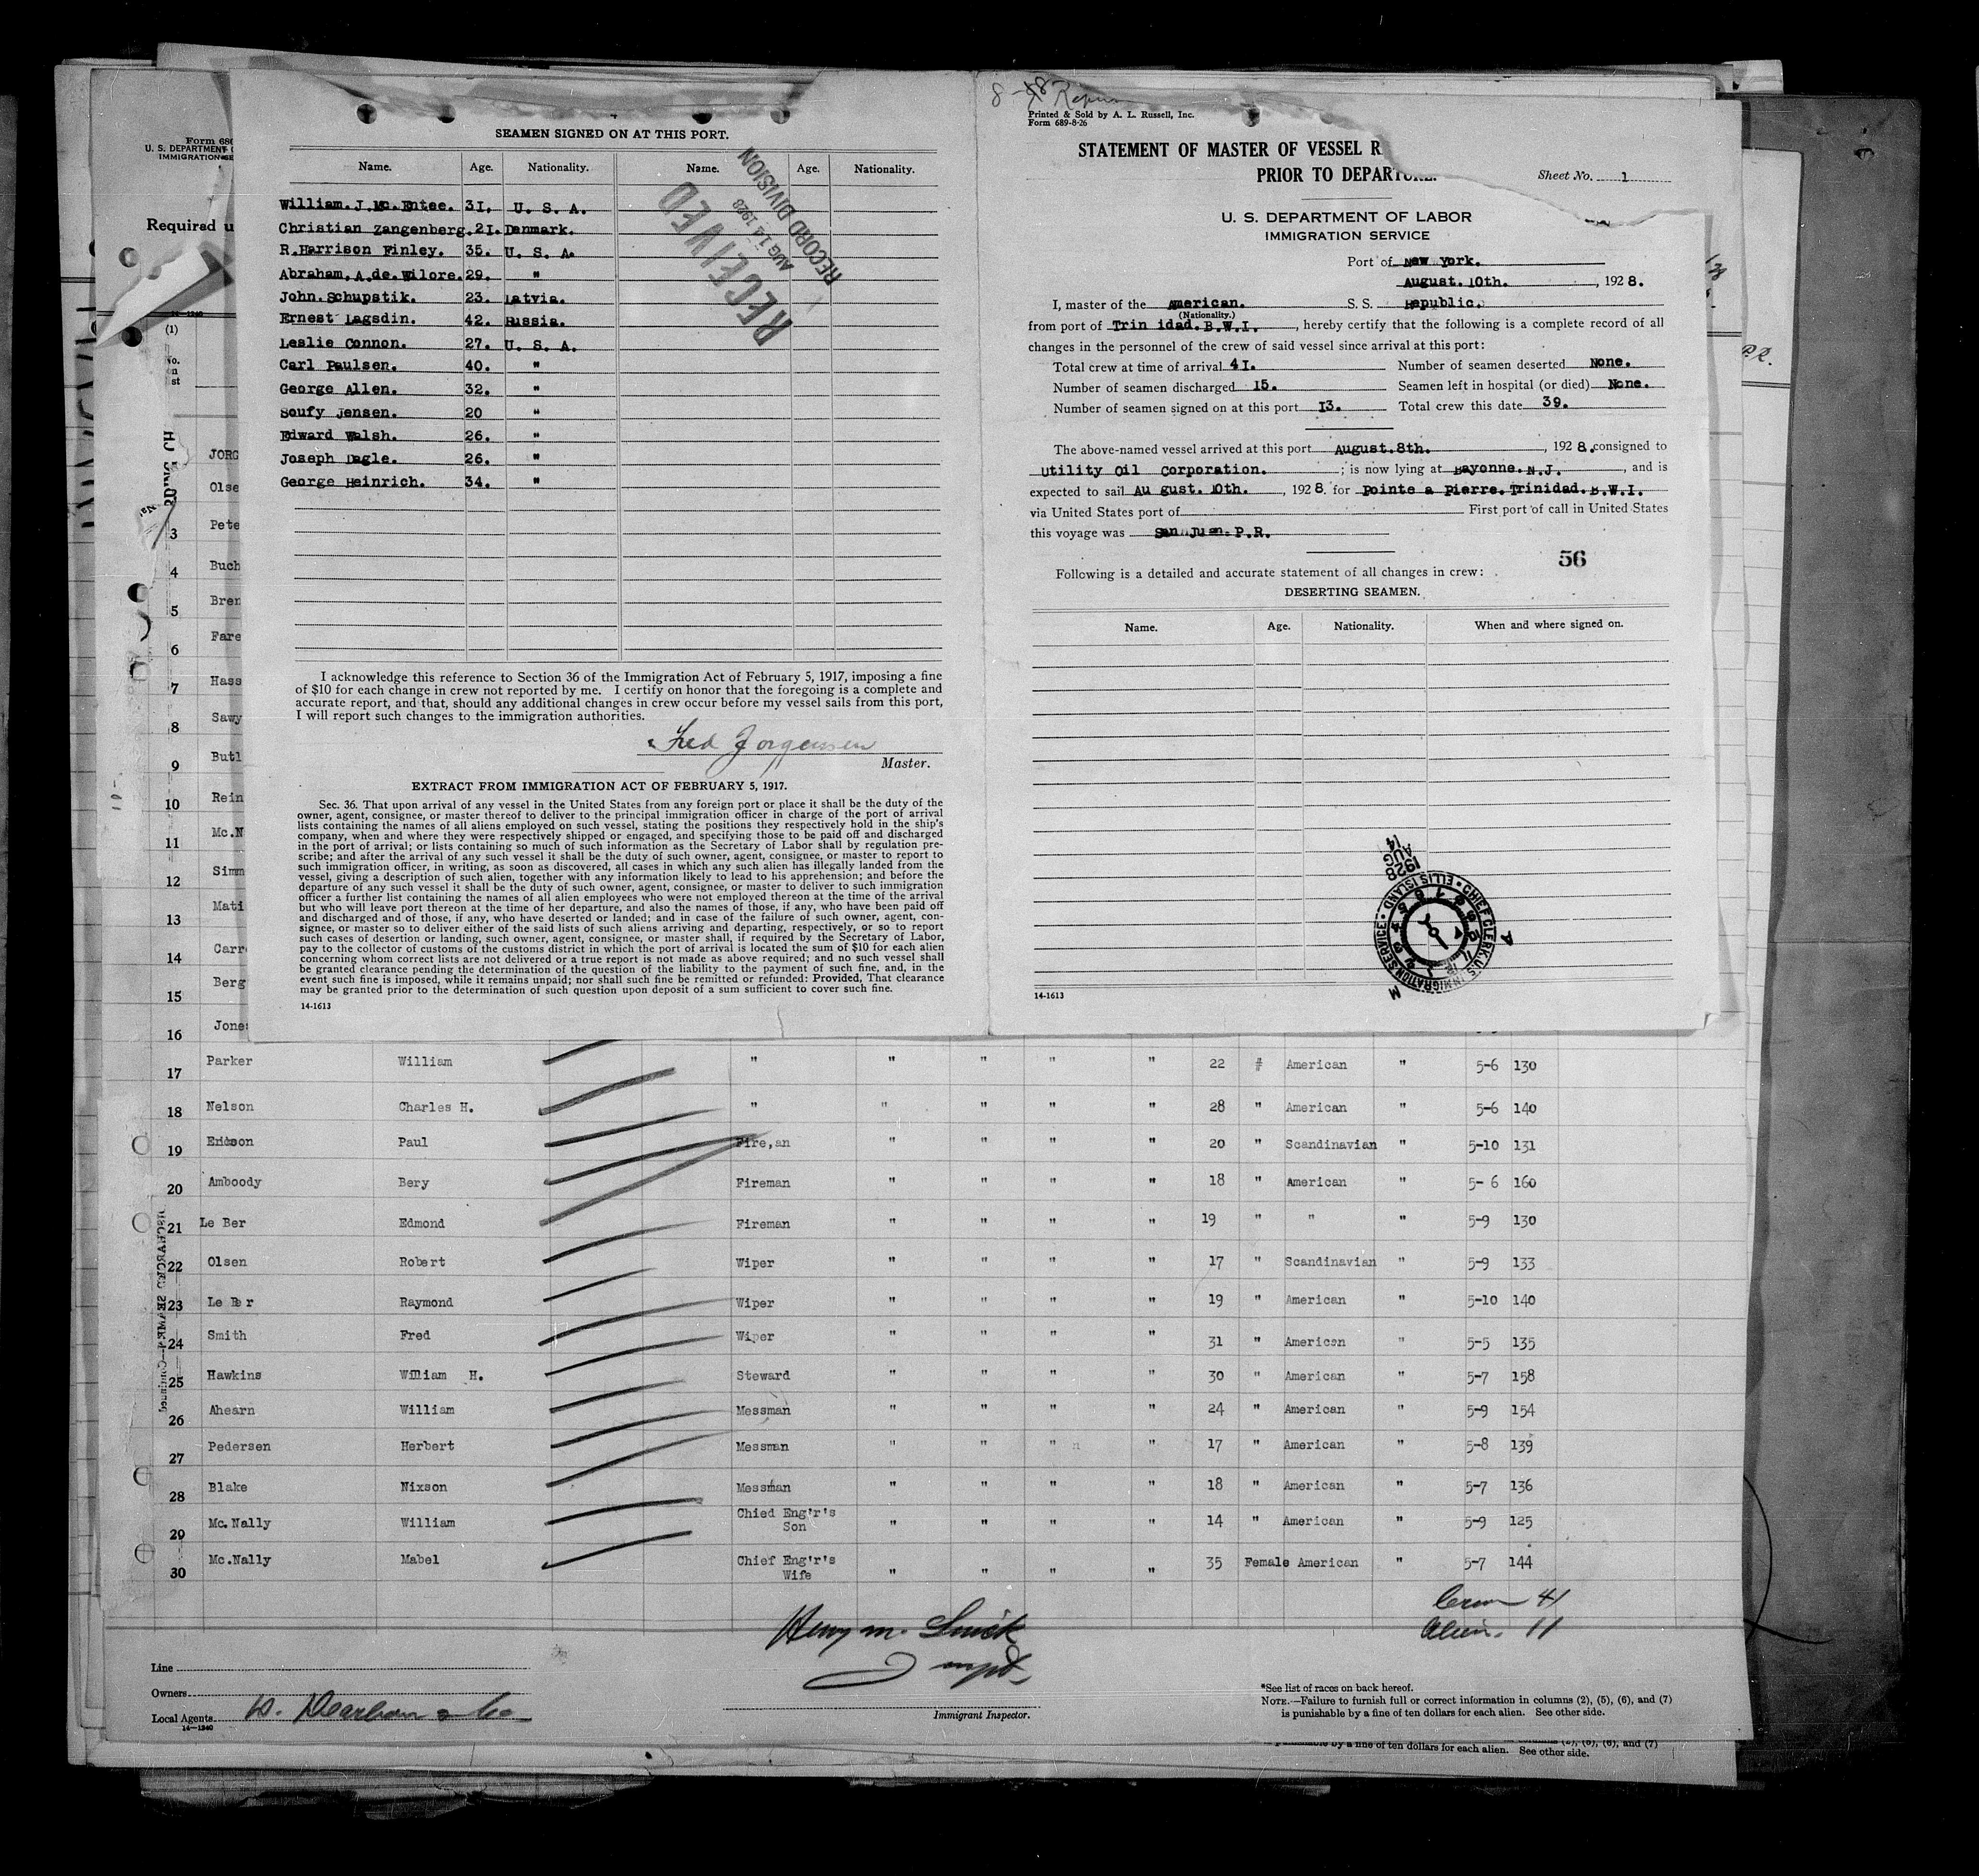 Form 680
U. S. DEPARTMENT
IMMIGRATION SE
Required u
(1)
No.
on
list
SEAMEN SIGNED ON AT THIS PORT.
Name. Age. Nationality. Name. Age. Nationality.
William.J.Mc.Entee. 31. U. S. A.
Christian Zangenberg. 21. Denmark.
R.Harrison Finley. 35. U. S. A.
Abraham.A.de.Wilore. 29. "
John.Schupstik. 23. Latvia.
Ernest Lagsdin. 42. Russia.
Leslie Connon. 27. U. S. A.
Carl Paulsen. 40. "
George Allen. 32. "
Soufy Jensen. 20 "
Edward Walsh. 26. "
Joseph Dagle. 26. "
George Heinrich. 34. "
RECEIVED
AUG 14 1928
RECORD DIVISION
I acknowledge this reference to Section 36 of the Immigration Act of February 5, 1917, imposing a fine
of $10 for each change in crew not reported by me. I certify on honor that the foregoing is a complete and
accurate report, and that, should any additional changes in crew occur before my vessel sails from this port,
I will report such changes to the immigration authorities.
Fred Jorgensen
Master.
EXTRACT FROM IMMIGRATION ACT OF FEBRUARY 5, 1917.
Sec. 36. That upon arrival of any vessel in the United States from any foreign port or place it shall be the duty of the
owner, agent, consignee, or master thereof to deliver to the principal immigration officer in charge of the port of arrival
lists containing the names of all aliens employed on such vessel, stating the positions they respectively hold in the ship's
company, when and where they were respectively shipped or engaged, and specifying those to be paid off and discharged
in the port of arrival; or lists containing so much of such information as the Secretary of Labor shall by regulation pre-
scribe; and after the arrival of any such vessel it shall be the duty of such owner, agent, consignee, or master to report to
such immigration officer, in writing, as soon as discovered, all cases in which any such alien has illegally landed from the
vessel, giving a description of such alien, together with any information likely to lead to his apprehension; and before the
departure of any such vessel it shall be the duty of such owner, agent, consignee, or master to deliver to such immigration
officer a further list containing the names of all alien employees who were not employed thereon at the time of the arrival
but who will leave port thereon at the time of her departure, and also the names of those, if any, who have been paid off
and discharged and of those, if any, who have deserted or landed; and in case of the failure of such owner, agent, con-
signee, or master so to deliver either of the said lists of such aliens arriving and departing, respectively, or so to report
such cases of desertion or landing, such owner, agent, consignee, or master shall, if required by the Secretary of Labor,
pay to the collector of customs of the customs district in which the port of arrival is located the sum of $10 for each alien
concerning whom correct lists are not delivered or a true report is not made as above required; and no such vessel shall
be granted clearance pending the determination of the question of the liability to the payment of such fine, and, in the
event such fine is imposed, while it remains unpaid; nor shall such fine be remitted or refunded: Provided, That clearance
may be granted prior to the determination of such question upon deposit of a sum sufficient to cover such fine.
14-1613
Printed & Sold by A. L. Russell, Inc.
Form 689-8-26
STATEMENT OF MASTER OF VESSEL R
PRIOR TO DEPARTURE.
Sheet No. 1
U. S. DEPARTMENT OF LABOR
IMMIGRATION SERVICE
Port of New York.
August. 10th. , 1928.
I, master of the American. S. S. Republic.
(Nationality.)
from port of Trin idad.B.W.I. , hereby certify that the following is a complete record of all
changes in the personnel of the crew of said vessel since arrival at this port:
Total crew at time of arrival 41. Number of seamen deserted None.
Number of seamen discharged 15. Seamen left in hospital (or died) None.
Number of seamen signed on at this port 13. Total crew this date 39.
The above-named vessel arrived at this port August.8th. , 1928. consigned to
Utility Oil Corporation. ; is now lying at Bayonne.N.J. , and is
expected to sail Au gust. 10th. , 1928. for Pointe a Pierre.Trinidad.B.W.I.
via United States port of First port of call in United States
this voyage was San Juan. P.R.
56
Following is a detailed and accurate statement of all changes in crew:
DESERTING SEAMEN.
Name. Age. Nationality. When and where signed on.
1928
AUG
14
CHIEF CLERK, U.S. IMMIGRATION SERVICE • ELLIS ISLAND •
A
M
14-1613
JORG
Olse
3 Pete
4 Buch
5 Bren
6 Fare
7 Hass
8 Sawy
9 Butl
10 Rein
11 Mc.N
12 Simm
13 Mati
14 Carr
15 Berg
16 Jone
17 Parker William " " " " " 22 # American " 5-6 130
18 Nelson Charles H. " " " " " 28 " American " 5-6 140
19 Ericson Paul Fire,an " " " " 20 " Scandinavian " 5-10 131
20 Amboody Bery Fireman " " " " 18 " American " 5- 6 160
21 Le Ber Edmond Fireman " " " " 19 " " " 5-9 130
22 Olsen Robert Wiper " " " " 17 " Scandinavian " 5-9 133
23 Le Ber Raymond Wiper " " " " 19 " American " 5-10 140
24 Smith Fred Wiper " " " " 31 " American " 5-5 135
25 Hawkins William H. Steward " " " " 30 " American " 5-7 158
26 Ahearn William Messman " " " " 24 " American " 5-9 154
27 Pedersen Herbert Messman " " " " 17 " American " 5-8 139
28 Blake Nixson Messman " " " " 18 " American " 5-7 136
29 Mc.Nally William Chied Eng'r's Son " " " " 14 " American " 5-9 125
30 Mc.Nally Mabel Chief Eng'r's Wife " " " " 35 Female American " 5-7 144
Crew 41
Alien. 11
Line
Owners
Local Agents
14—1240
Immigrant Inspector.
*See list of races on back hereof.
NOTE.—Failure to furnish full or correct information in columns (2), (5), (6), and (7)
is punishable by a fine of ten dollars for each alien. See other side.
is punishable by a fine of ten dollars for each alien. See other side.